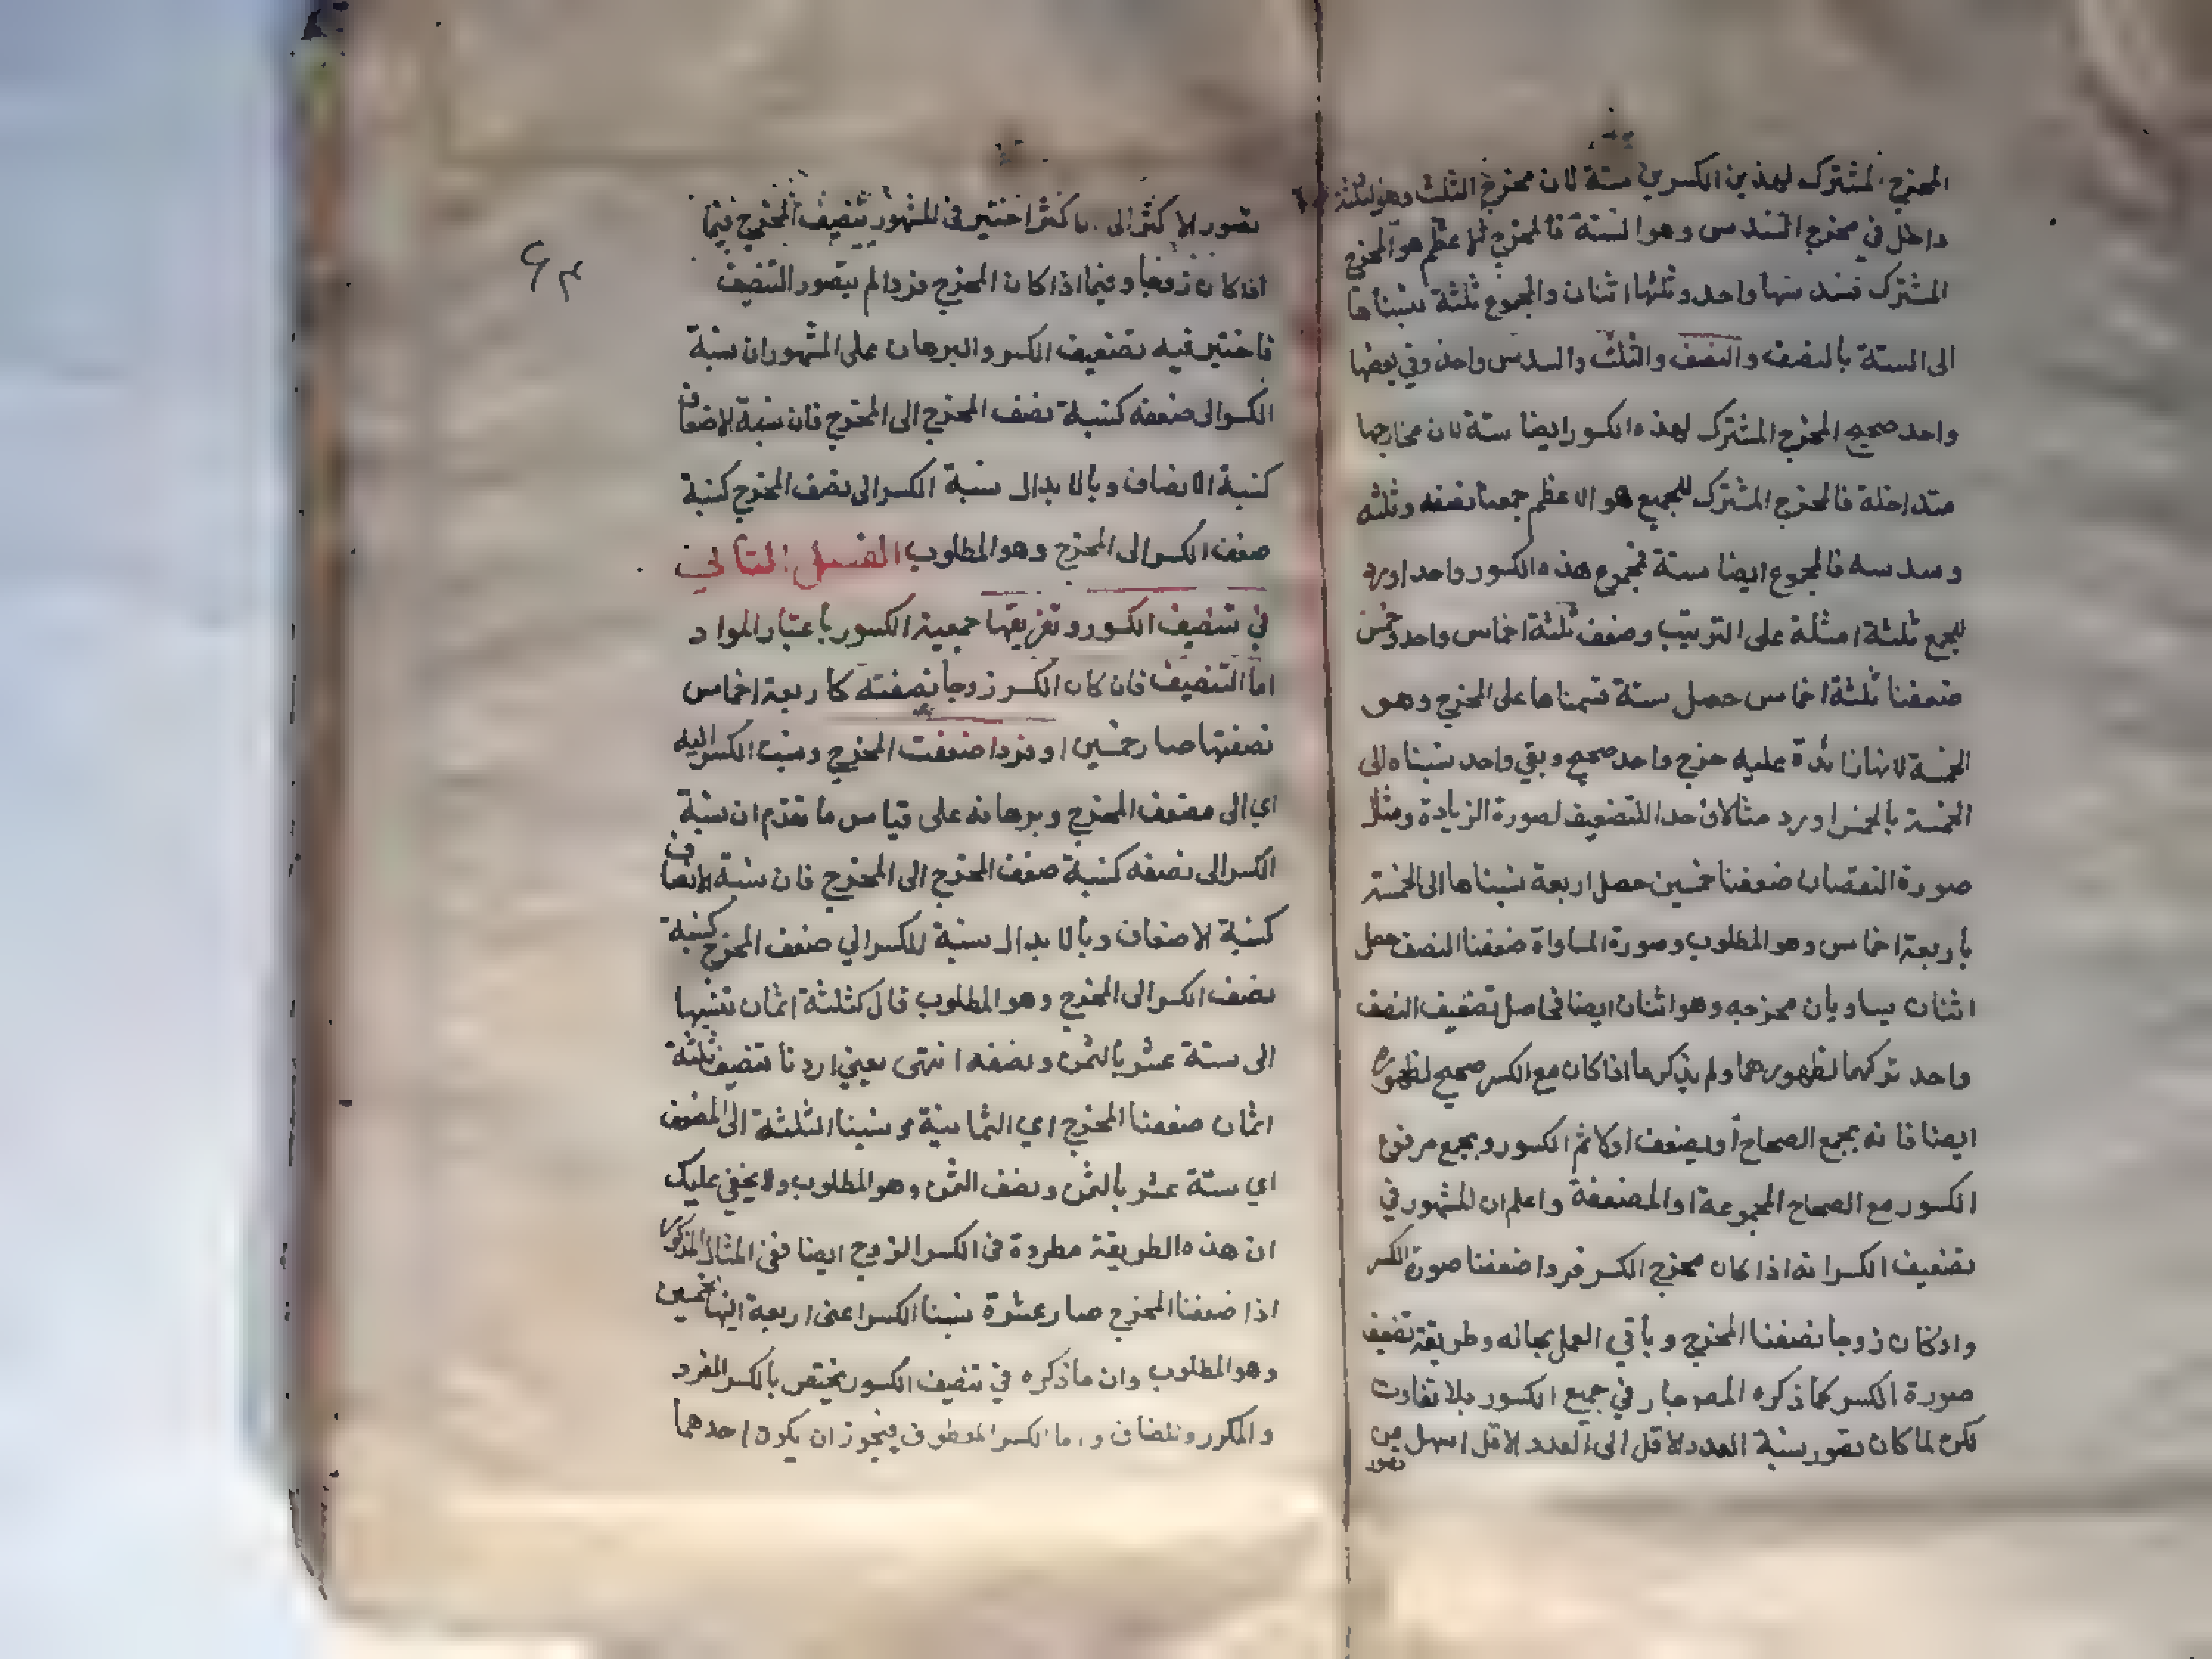 المخرج المشترك لهذين الكسرين ستة لان مخرج الثلث وهو الثلثة
داخل في مخرج السدس وهو الستة فالمخرج الاعظم هو المخرج
المشترك فسدسها واحد وثلثها اثنان والمجموع ثلثة نسبناها
الى الستة بالنصف والنصف والثلث والسدس واحد وفي بعضها
واحد صحيح المخرج المشترك لهذه الكسور ايضا ستة لان مخارجها
متداخلة فالمخرج المشترك للجميع هو الاعظم جمعنا نصفه وثلثه
وسدسه فالمجموع ايضا ستة فمجموع هذه الكسور واحد اورد
للجمع ثلثة امثلة على الترتيب وضعف ثلثة اخماس واحد وخمس
ضعفنا ثلثة اخماس حصل ستة قسمناها على المخرج وهو
الخمسة لانها زائدة عليه خرج واحد صحيح وبقي واحد نسبناه الى
الخمسة بالخمس اورد مثالا واحدا للتضعيف لصورة الزيادة ومثل
صورة النقصان ضعفنا خمسين حصل اربعة نسبناها الى الخمسة
باربعة اخماس وهو المطلوب وصورة المساواة ضعفنا النصف حصل
اثنان يساويان مخرجه وهو اثنان ايضا فحاصل تضعيف النصف
واحد تركهما لظهورهما ولم يذكر ما اذا كان مع الكسر صحيح لظهوره
ايضا فانه يجمع الصحاح او يضعف اولا ثم الكسور ويجمع مرفوع
الكسور مع الصحاح المجموعة او المضعفة واعلم ان المشهور في
تضعيف الكسر انه اذا كان مخرج الكسر فردا ضعفنا صورة الكسر
وان كان زوجا نصفنا المخرج وباقي العمل بحاله وطريقة تضعيف
صورة الكسر كما ذكره المصر جار في جميع الكسور بلا تفاوت
لكن لما كان تصور نسبة العدد الاقل الى العدد الاقل اسهل من
تصور
تصور الاكثر الى الاكثر اختير في المشهور تنصيف المخرج فيما
اذا كان زوجا وفيما اذا كان المخرج فردا لم يتصور التنصيف
فاختير فيه تضعيف الكسر والبرهان على المشهور ان نسبة
الكسر الى ضعفه كنسبة نصف المخرج الى المخرج فان نسبة الاضعاف
كنسبة الانصاف وبالابدال نسبة الكسر الى نصف المخرج كنسبة
ضعف الكسر الى المخرج وهو المطلوب الفصل الثاني
في تنصيف الكسور وتفريقها جمعية الكسور باعتبار المواد
اما التنصيف فان كان الكسر زوجا نصفته كاربعة اخماس
نصفتها صار خمسين او فردا ضعفت المخرج ونسبت الكسر اليه
اي الى مضعف المخرج وبرهانه على قياس ما تقدم ان نسبة
الكسر الى نصفه كنسبة ضعف المخرج الى المخرج فان نسبة الانصاف
كنسبة الاضعاف وبالابدال نسبة الكسر الي ضعف المخرج كنسبة
نصف الكسر الى المخرج وهو المطلوب قال كثلثة اثمان تنسبها
الى ستة عشر بالثمن ونصفه انتهى يعني اردنا تنصيف ثلثة
اثمان ضعفنا المخرج اي الثمانية ونسبنا الثلثة الى المضعف
اي ستة عشر بالثمن ونصف الثمن وهو المطلوب ولا يخفي عليك
ان هذه الطريقة مطردة في الكسر الزوج ايضا ففي المثال المذكور
اذا ضعفنا المخرج صار عشرة نسبنا الكسر اعنى اربعة اليها بخمسين
وهو المطلوب وان ما ذكره في تنصيف الكسور يختص بالكسر المفرد
والمكرر والمضاف واما الكسر المعطوف فيجوز ان يكون احدهما